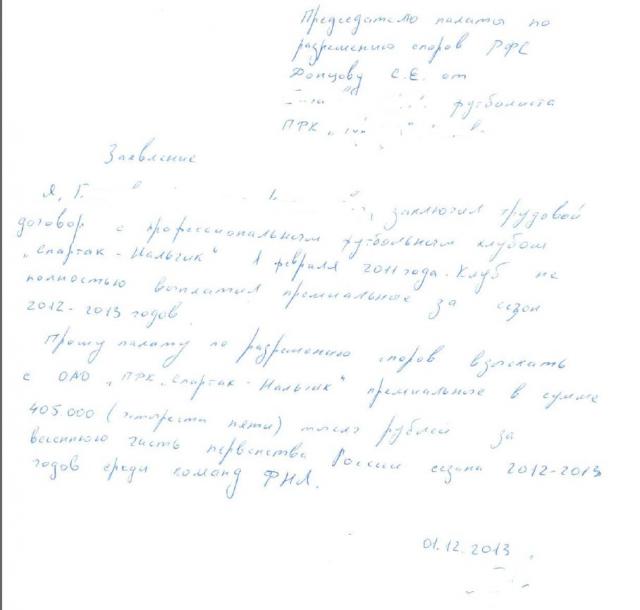 Председателю палаты по
разрешению споров РФС
Донцову С.Е. от
футболиста
ПФК „
Заявление
Я, Г. , заключил трудовой
договор с профессиональным футбольным клубом
„Спартак-Нальчик" 1 февраля 2011 года. Клуб не
полностью выплатил премиальное за сезон
2012-2013 годов.
Прошу палату по разрешению споров взыскать
с ОАО „ПФК „Спартак-Нальчик" премиальное в сумме
405.000 (четыреста пяти) тысяч рублей за
весеннюю часть первенства России сезона 2012-2013
годов среди команд ФНЛ.
01.12.2013